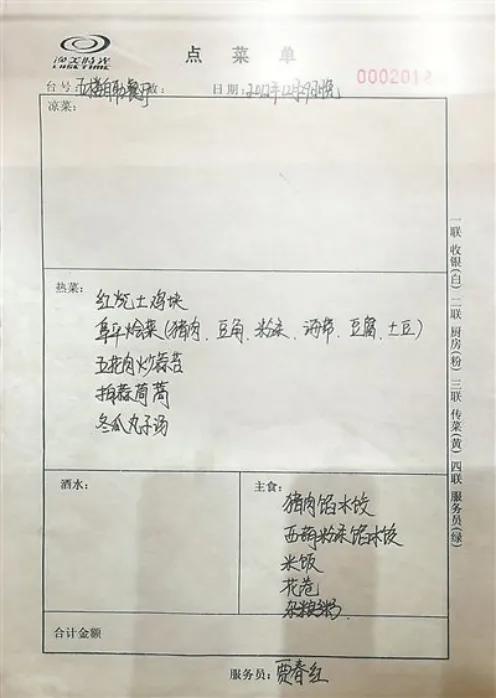 渔美时光
LUSKTIME
点菜单
0002012
台号：五楼自助餐厅 数： 日期：2012年12月29日晚
凉菜：
热菜：
红烧土鸡块
阜平烩菜（猪肉、豆角、粉条、海带、豆腐、土豆）
五花肉炒蒜苔
拍蒜茼蒿
冬瓜丸子汤
酒水：
主食：
猪肉馅水饺
西葫粉条馅水饺
米饭
花卷
杂粮粥
合计金额
服务员：贾春红
一联 收银(白) 二联 厨房(粉) 三联 传菜(黄) 四联 服务员(绿)